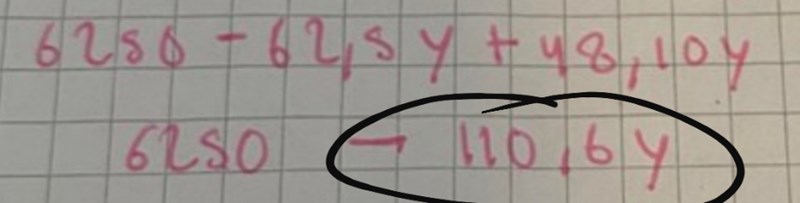 6250 - 62,5y + 48,10y
6250 - 110,6y